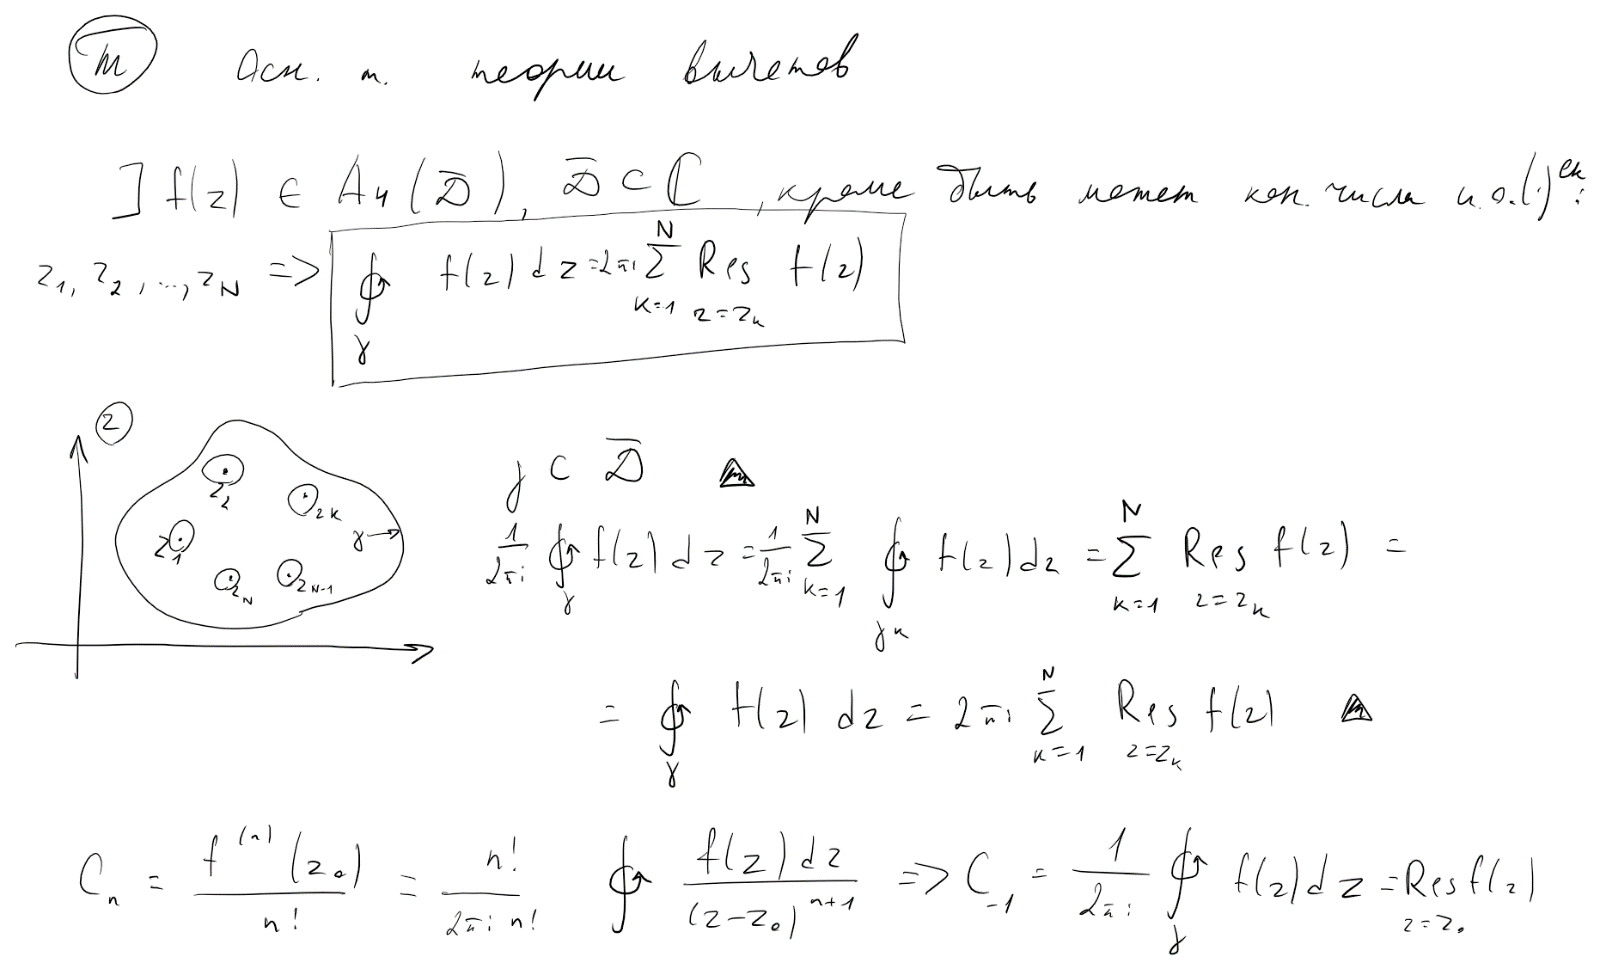 (т) Осн. т. теории вычетов
] f(z) ∈ Ан(D̄), D̄ ⊂ ℂ, кроме быть может кон. числа и.о.(·)ек:
z₁, z₂, ..., z_N => ∮_γ f(z) dz = 2πi ∑_{k=1}^{N} Res_{z=z_k} f(z)
(z) z₂ z_k z₁ γ→ z_N z_{N-1}
γ ⊂ D̄ ▲
1/(2πi) ∮_γ f(z) dz = 1/(2πi) ∑_{k=1}^{N} ∮_{γ_k} f(z) dz = ∑_{k=1}^{N} Res_{z=z_k} f(z) =
= ∮_γ f(z) dz = 2πi ∑_{k=1}^{N} Res_{z=z_k} f(z) ▲
C_n = f^{(n)}(z₀)/n! = n!/(2πi n!) ∮ f(z)dz/(z-z₀)^{n+1} => C_{-1} = 1/(2πi) ∮_γ f(z)dz = Res_{z=z₀} f(z)